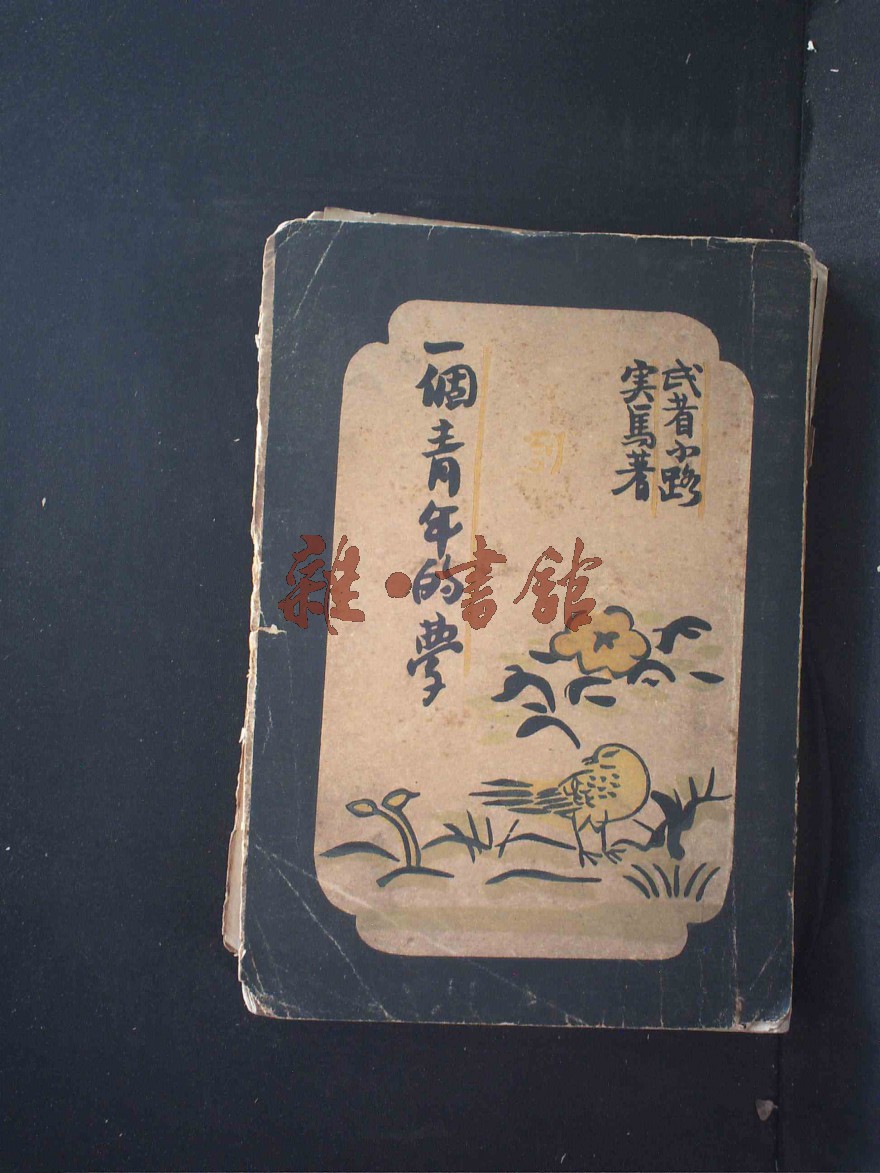 武者小路
実馬著
一個青年的夢
雜·書館